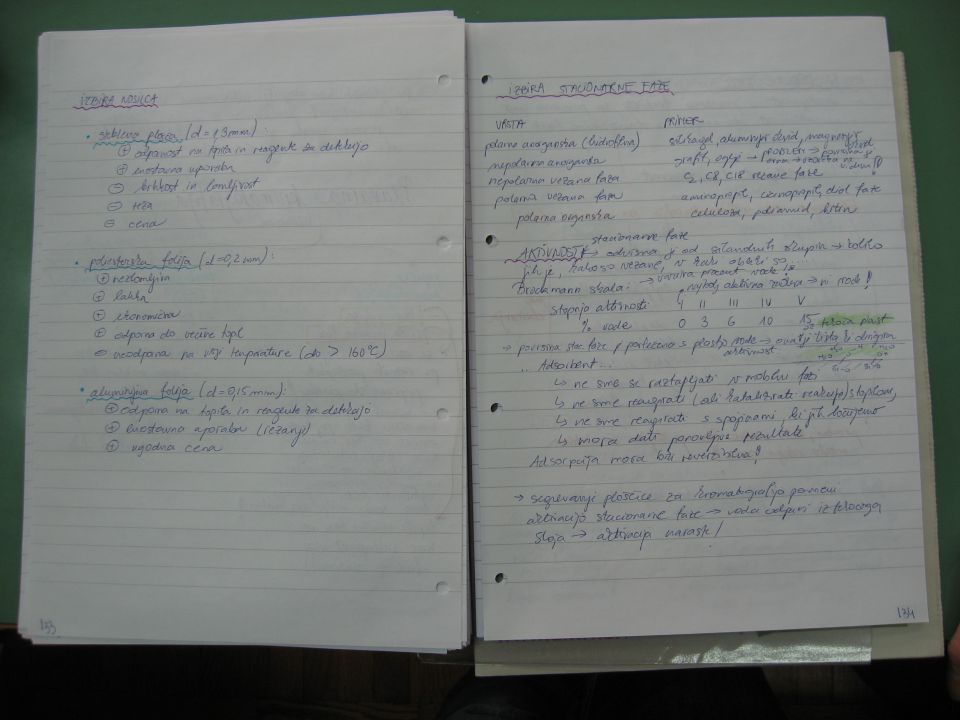 IZBIRA NOSILCA
• steklena plošča (d = 1,3 mm):
⊕ odpornost na topila in reagente za detekcijo
⊕ enostavna uporaba
⊖ krhkost in lomljivost
⊖ teža
⊖ cena
• poliesterska folija (d = 0,2 mm):
⊕ nezlomljiva
⊕ lahka
⊕ ekonomična
⊕ odporna do večine topil
⊖ neodporna na višje temperature (do > 160°C)
• aluminijeva folija (d = 0,15 mm):
⊕ odporna na topila in reagente za detekcijo
⊕ enostavna uporaba (rezanje)
⊕ ugodna cena
133
IZBIRA STACIONARNE FAZE
VRSTA PRIMER
polarna anorganska (hidrofilna) silikagel, aluminijev oksid, magnezijev
nepolarna anorganska grafit, oglje → PROBLEM → površina je
nepolarna vezana faza C2, C8, C18 vezane faze
polarna vezana faza aminopropil, cianopropil, diol faze
polarna organska celuloza, poliamid, kitin
stacionarne faze
AKTIVNOST → odvisna je od silanolnih skupin → koliko
jih je, kako so vezane, v kaki obliki so...
Brockmann skala: → vode
najbolj aktivna → ni vode!
stopnja aktivnosti I II III IV V
% vode 0 3 6 10 15
→ površina stac. faze je s plastjo vode →
aktivnost
.. Adsorbent...
↳ ne sme se raztapljati v mobilni fazi
↳ ne sme reagirati (ali katalizirati reakcije) s topilom,
↳ ne sme reagirati s spojinami, ki jih ločujemo
↳ mora dati ponovljive rezultate
Adsorpcija mora biti reverzibilna!
→ segrevanje ploščice za kromatografijo pomeni
aktivacijo stacionarne faze → voda odpari iz
sloja → aktivacija naraste!
134